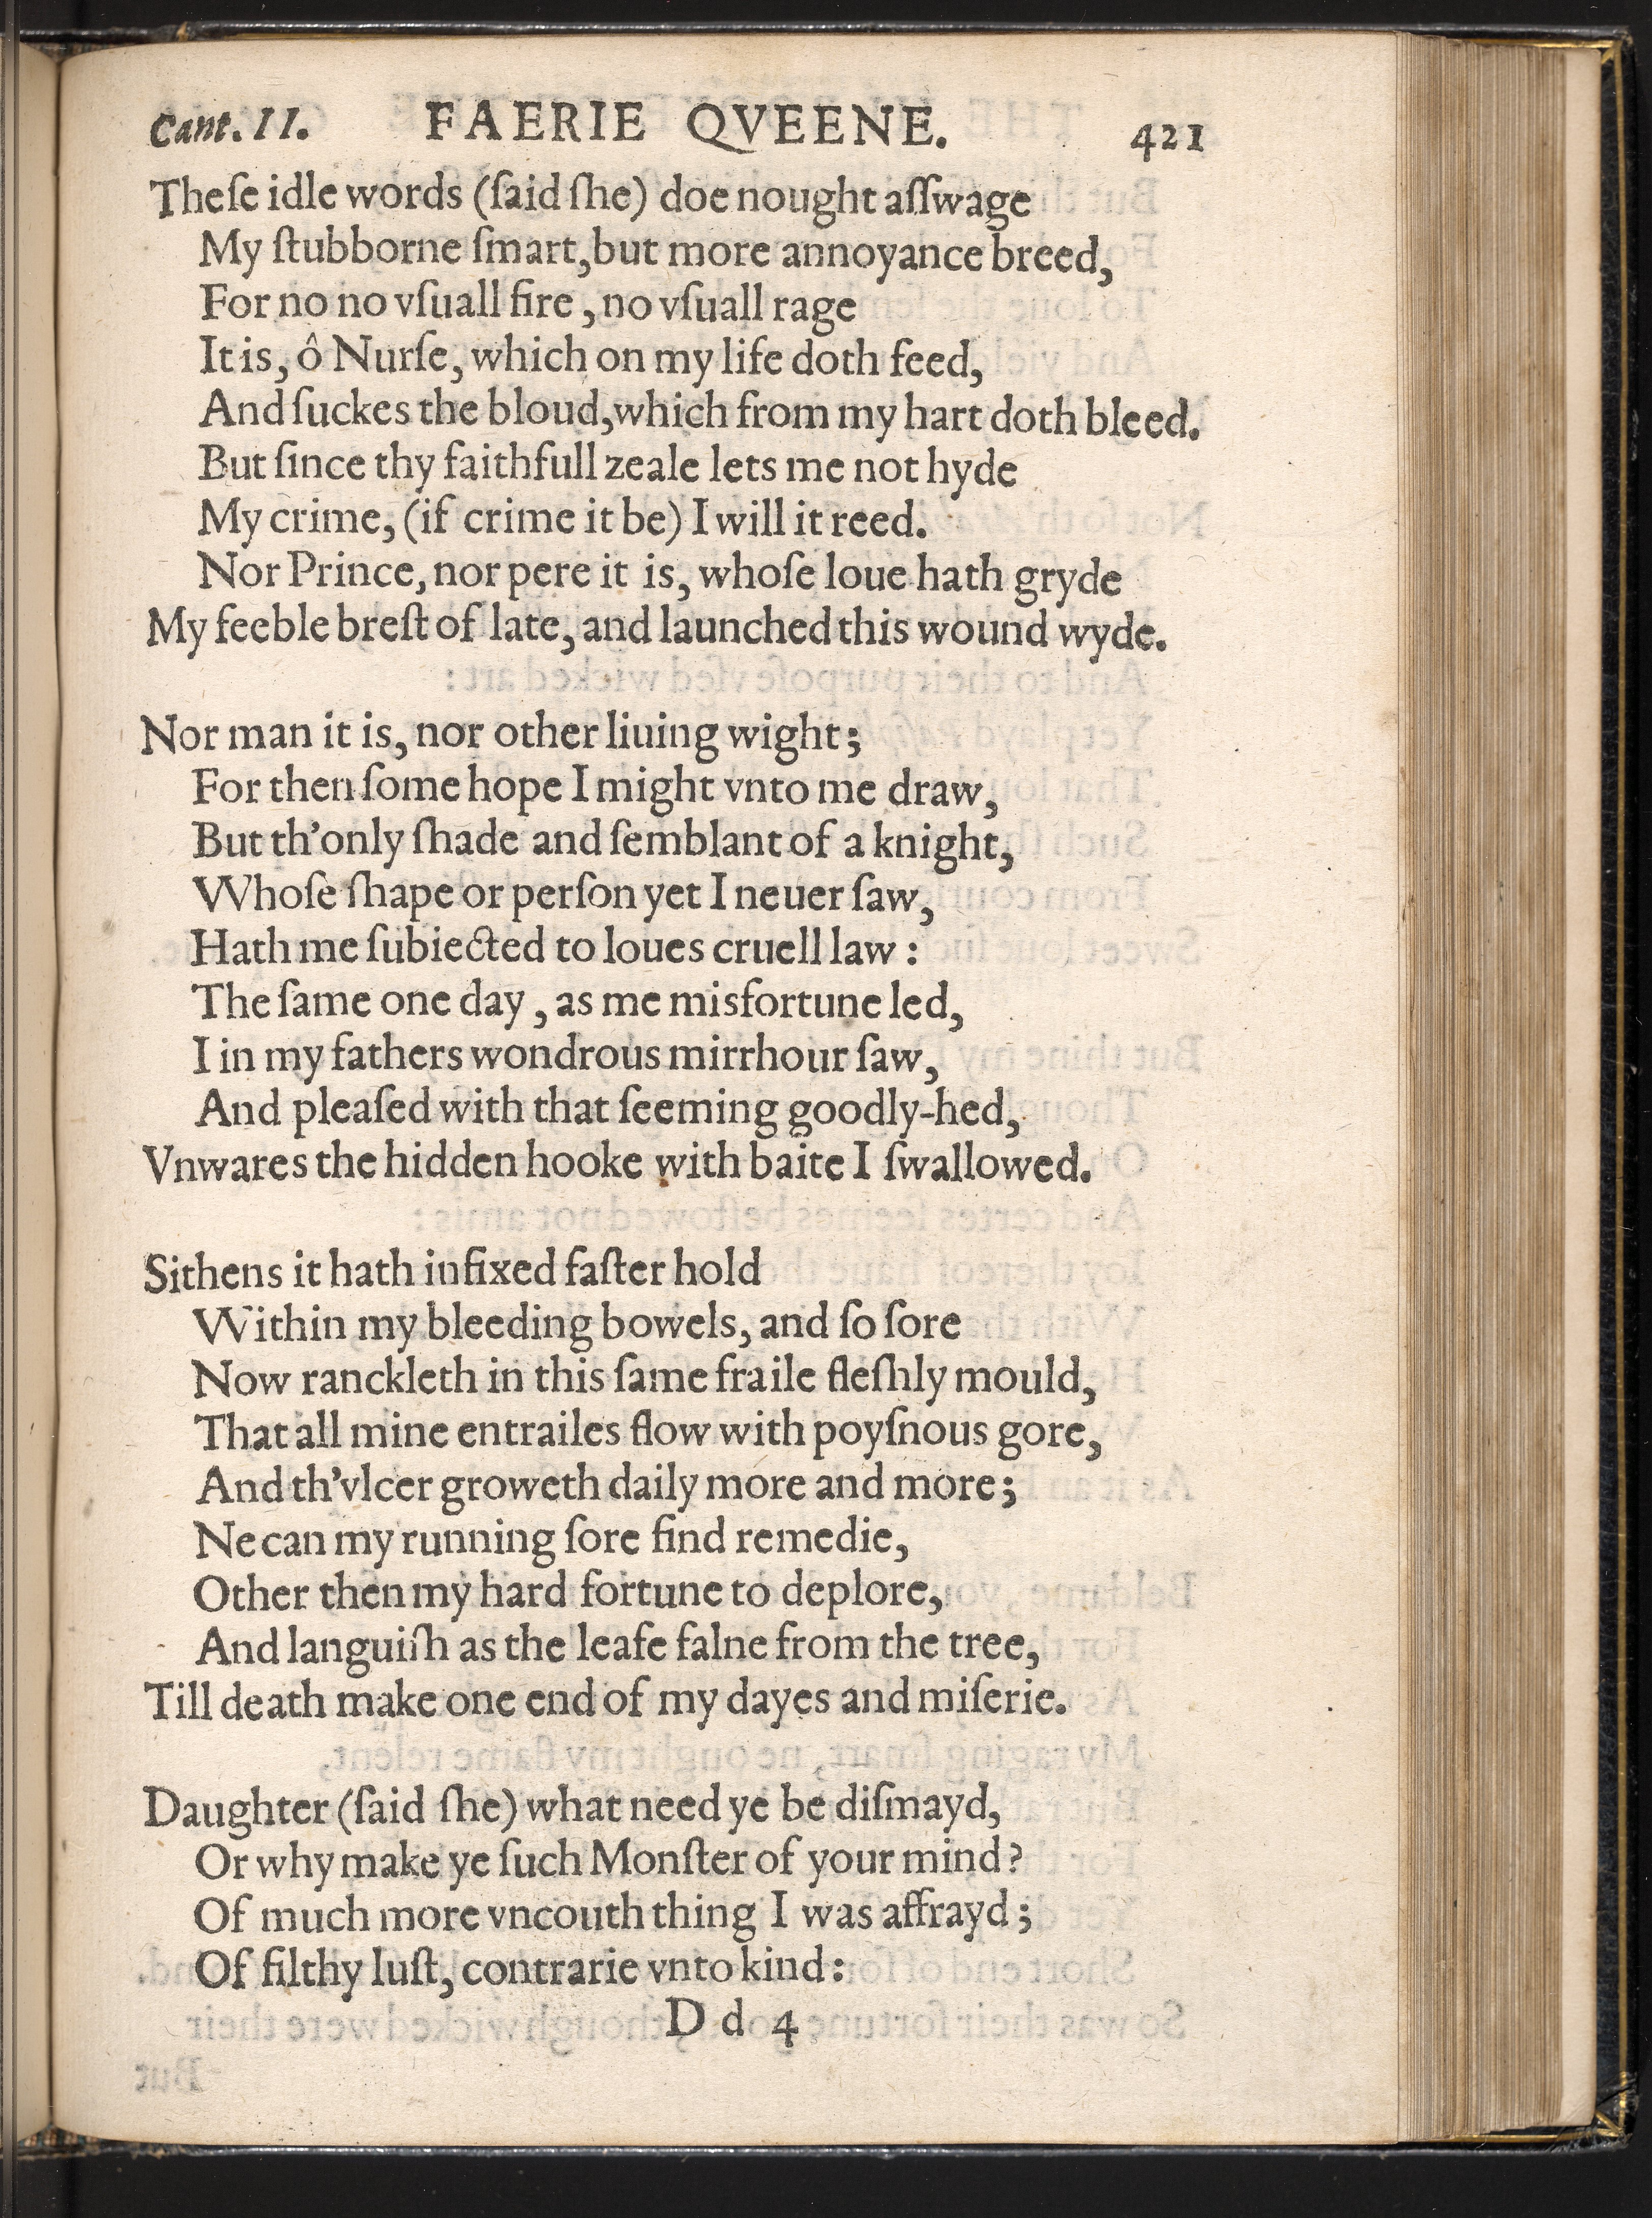 Cant. II. FAERIE QVEENE. 421
Theſe idle words (ſaid ſhe) doe nought aſſwage
My ſtubborne ſmart, but more annoyance breed,
For no no vſuall fire, no vſuall rage
It is, ô Nurſe, which on my life doth feed,
And ſuckes the bloud, which from my hart doth bleed.
But ſince thy faithfull zeale lets me not hyde
My crime, (if crime it be) I will it reed.
Nor Prince, nor pere it is, whoſe loue hath gryde
My feeble breſt of late, and launched this wound wyde.
Nor man it is, nor other liuing wight;
For then ſome hope I might vnto me draw,
But th'only ſhade and ſemblant of a knight,
Whoſe ſhape or perſon yet I neuer ſaw,
Hath me ſubiected to loues cruell law:
The ſame one day, as me misfortune led,
I in my fathers wondrous mirrhour ſaw,
And pleaſed with that ſeeming goodly-hed,
Vnwares the hidden hooke with baite I ſwallowed.
Sithens it hath infixed faſter hold
Within my bleeding bowels, and ſo ſore
Now ranckleth in this ſame fraile fleſhly mould,
That all mine entrailes flow with poyſnous gore,
And th'vlcer groweth daily more and more;
Ne can my running ſore find remedie,
Other then my hard fortune to deplore,
And languiſh as the leafe falne from the tree,
Till death make one end of my dayes and miſerie.
Daughter (ſaid ſhe) what need ye be diſmayd,
Or why make ye ſuch Monſter of your mind?
Of much more vncouth thing I was affrayd;
Of filthy luſt, contrarie vnto kind:
D d 4